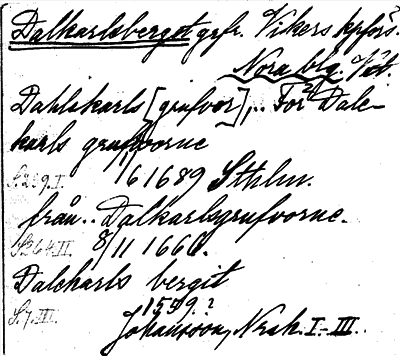 Dalkarlsberget grfr. Vikers kpförs.
Nora blg. Vstl.
Dahlskarls [grufvor],.. För Dale-
karls grufvorne
S. 259. I. 1/6 1689 Sthlm.
från.. Dalkarlsgrufvorne.
S. 264. II. 8/11 1660.
Dalekarls bergit
S. 7. III. 1559.?
Johansson, Norab. I-III.